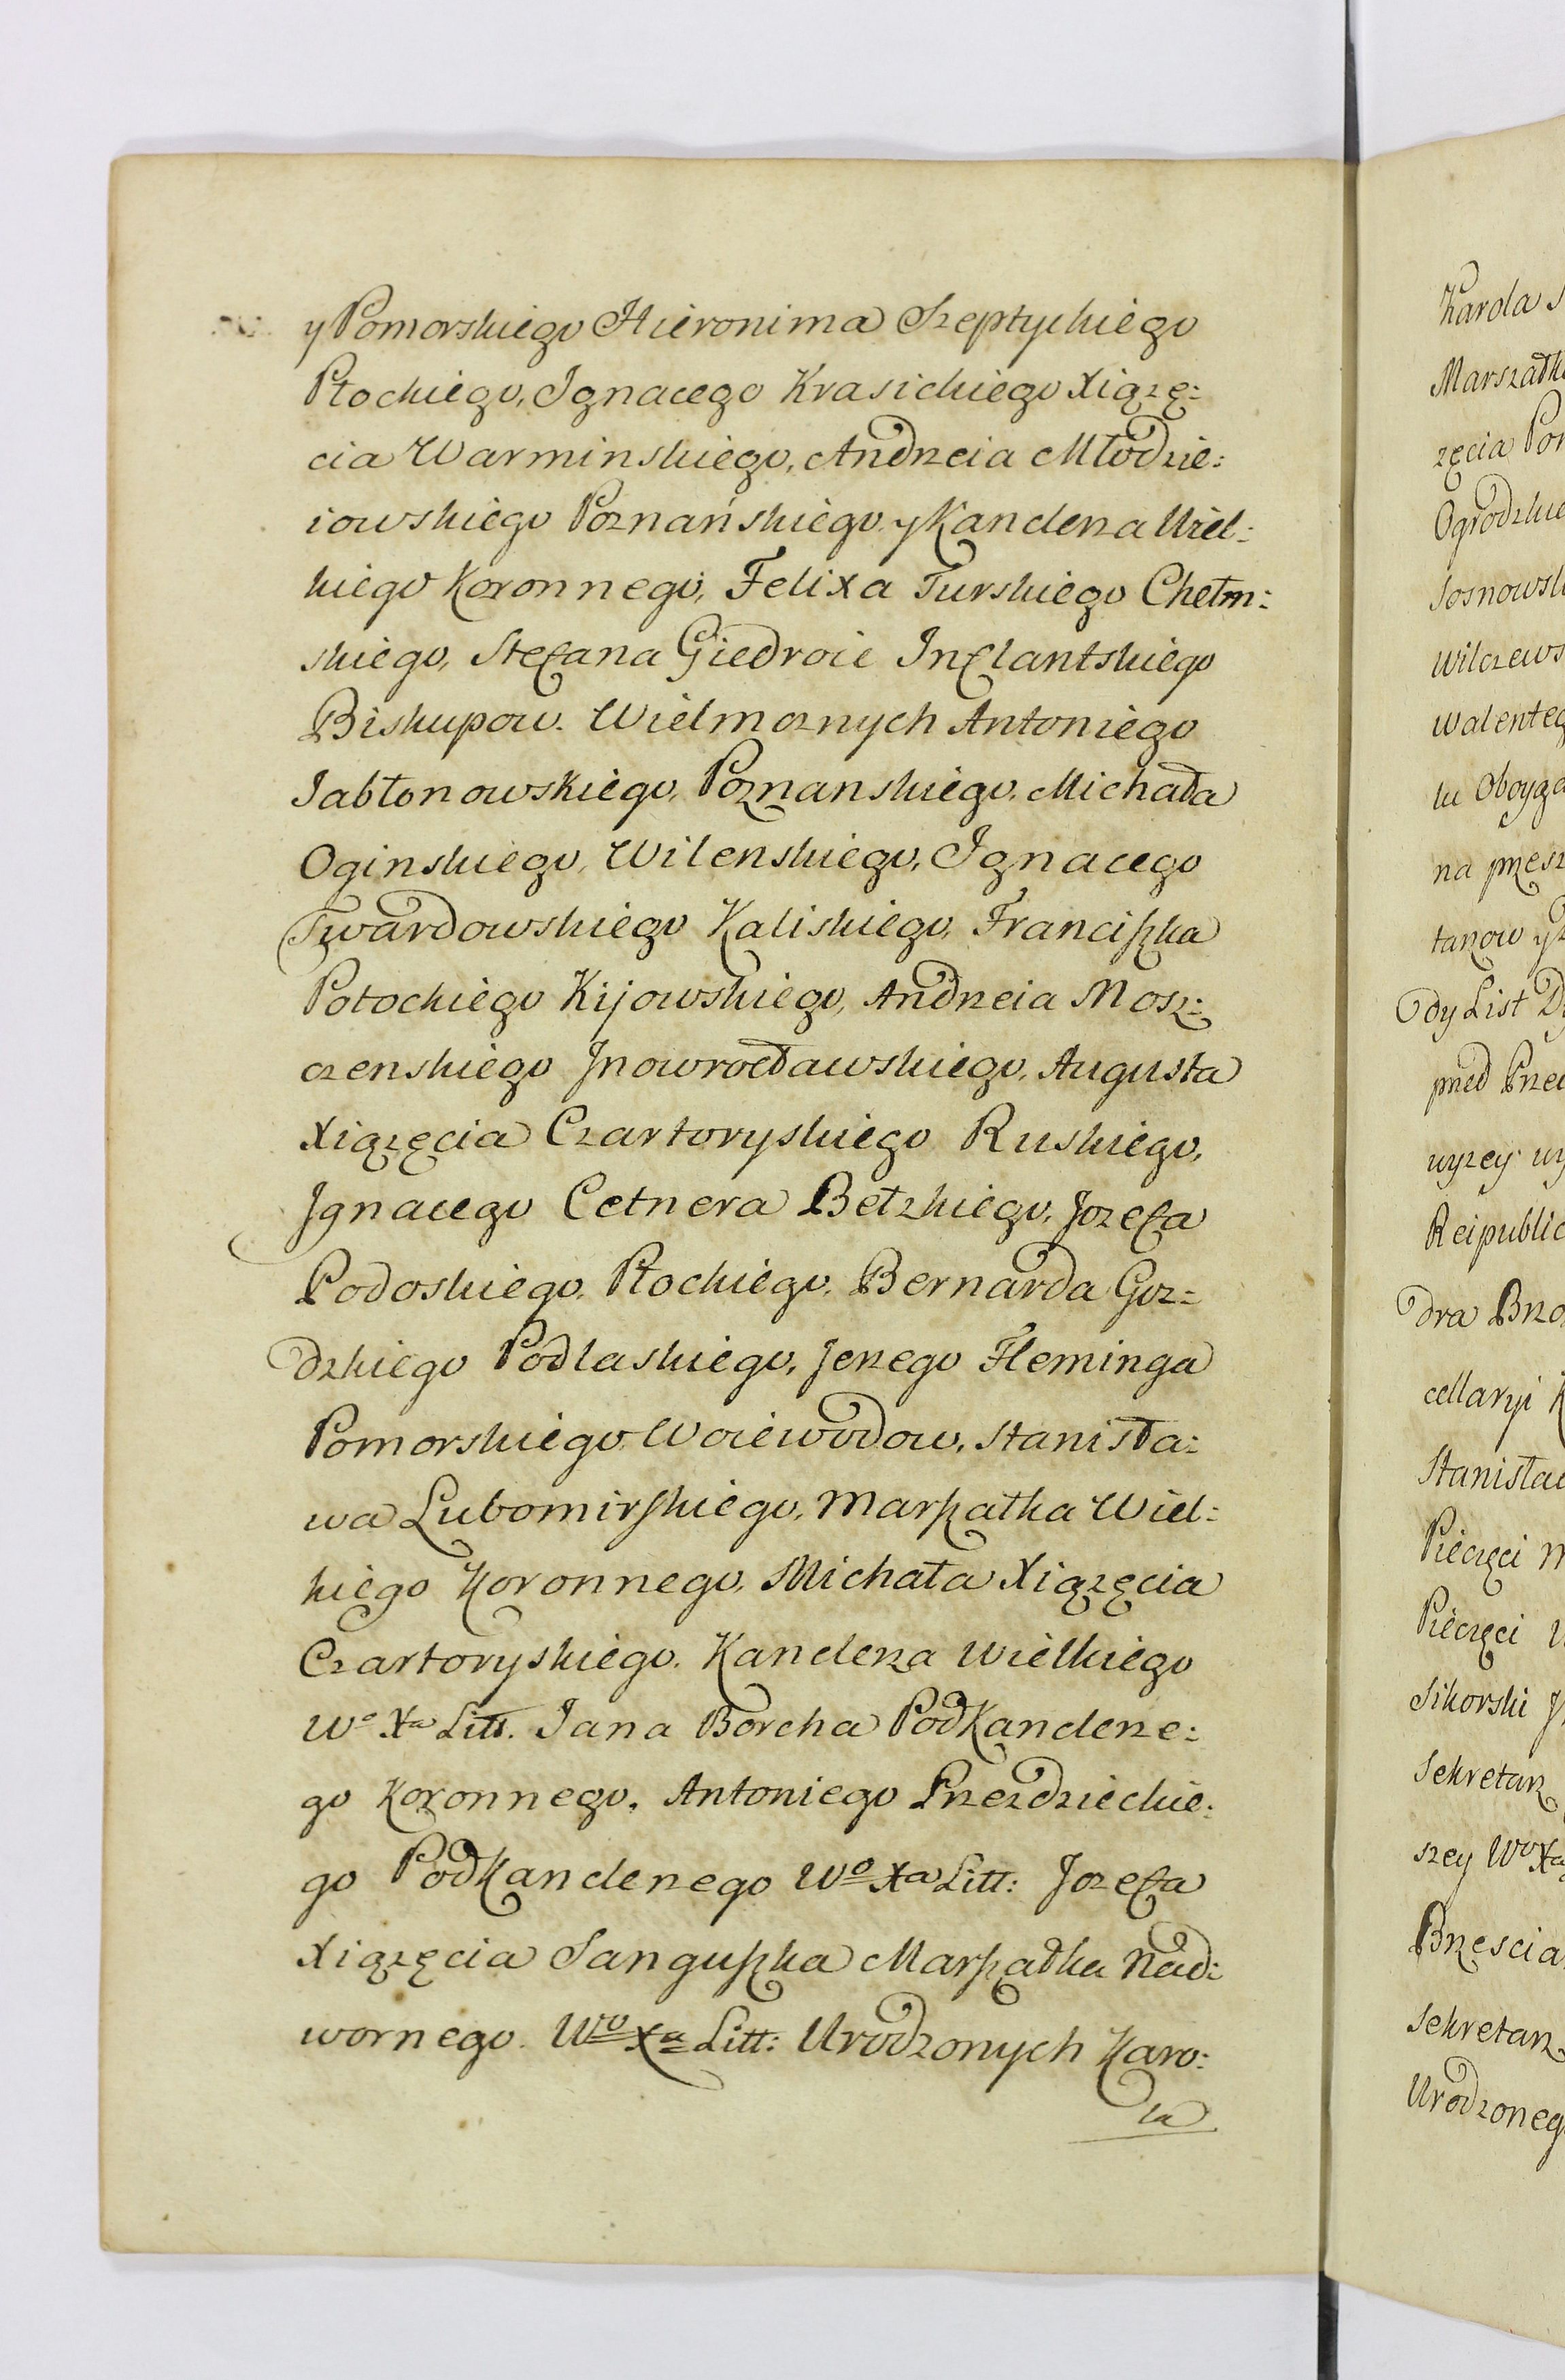 y Pomorskiego Hieronima Szeptyckiego
Płockiego, Ignacego Krasickiego Xiązę:
cia Warminskiego, Andrzeia Młodzie:
iowskiego Poznańskiego y Kanclerza Wiel:
kiego Koronnego, Felixa Turskiego Chełm:
skiego, Stefana Giedroic Inflantskiego
Biskupow. Wielmoznych Antoniego
Jabłonowskiego, Poznanskiego, Michała
Oginskiego, Wilenskiego, Ignacego
Twardowskiego Kaliskiego, Franciszka
Potockiego Kijowskiego, Andrzeia Mosz:
czenskiego Jnowrocławskiego, Augusta
Xiązęcia Czartoryskiego Ruskiego,
Jgnacego Cetnera Bełzkiego, Jozefa
Podoskiego, Płockiego, Bernarda Goz:
dzkiego Podlaskiego, Jerzego Fleminga
Pomorskiego Woiewodow, Stanisła:
wa Lubomirskiego, Marszałka Wiel:
kiego Koronnego, Michała Xiązęcia
Czartoryskiego, Kanclerza Wielkiego
Wo Xa Litt. Jana Borcha PodKanclerze:
go Koronnego, Antoniego Przezdzieckie:
go PodKanclerzego Wo Xa Litt: Jozefa
Xiązęcia Sanguszka Marszałka Nad:
wornego Wo Xa Litt: Urodzonych Karo:
la
Karola
Marszałk
zęcia Pon
Ogrodzkie
Sosnowsk
Wilczews
Walenteg
lu Oboyga
na przesz
tanow y
dy List D
przed Prze
wyzey wy
Reipublic
dra Brzo
cellaryi K
Stanisław
Pieczęci M
Pieczęci
Sikorski
Sekretarz
szey Wo Xa
Brzescia
Sekretarz
Urodzoneg